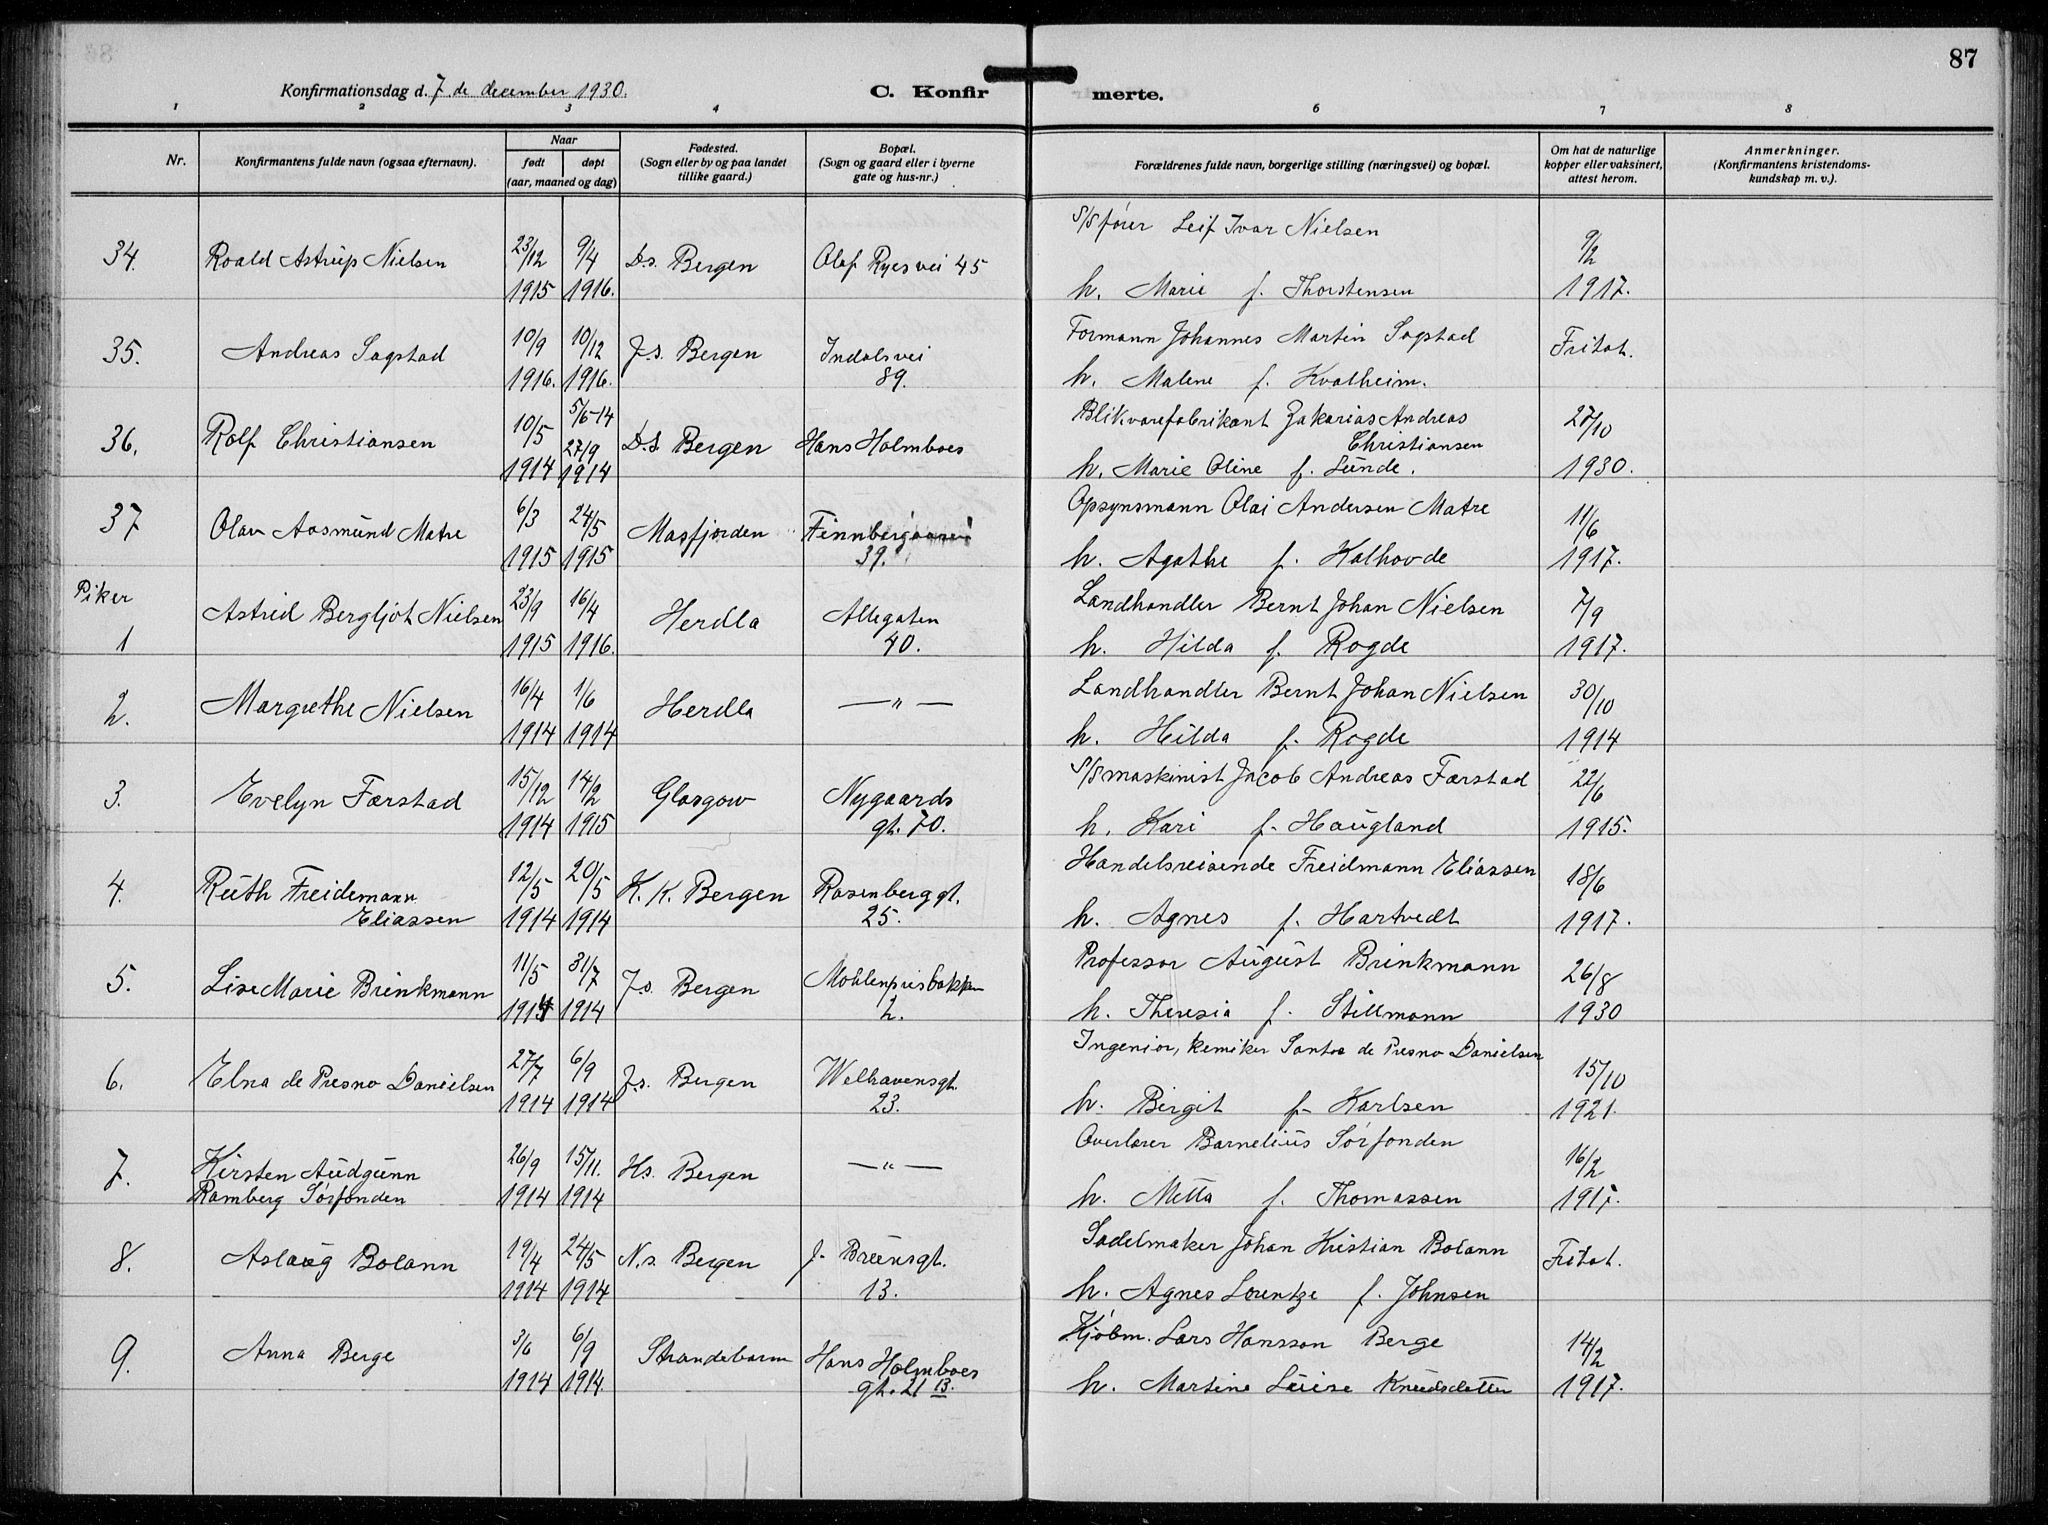 87
Konfirmationsdag d. 7 de december 1930.
C. Konfirmerte.
1 2 3 4 6 7 8
Nr.
Konfirmantens fulde navn (ogsaa efternavn).
Naar
født døpt
(aar, maaned og dag)
Fødested.
(Sogn eller by og paa landet
tillike gaard.)
Bopæl.
(Sogn og gaard eller i byerne
gate og hus-nr.)
Forældrenes fulde navn, borgerlige stilling (næringsvei) og bopæl.
Om hat de naturlige
kopper eller vaksinert,
attest herom.
Anmerkninger.
(Konfirmantens kristendoms-
kundskap m. v.).
34. Roald Astrup Nielsen 23/12 1915 9/4 1916. D.s. Bergen Olaf Ryesvei 45
S/S fører Leif Ivar Nielsen
h. Marie f. Thorstensen
9/2 1917.
35. Andreas Sagstad 10/9 1916. 10/12 1916. J.s. Bergen Indalsvei 89.
Formann Johannes Martin Sagstad
h. Malene f. Kvalheim.
Fritat.
36. Rolf Christiansen 10/5 1914 5/6-14 27/9 1914 D.s Bergen Hans Holmboes
Blikvarefabrikant Zakarias Andreas
Christiansen
h. Marie Oline f. Lunde.
27/10 1930.
37 Olav Aasmund Matre 6/3 1915 24/5 1915 Masfjorden 39.
Opsynsmann Olai Andersen Matre
h. Agathe f. Kalhovde
11/6 1917.
Piker
1 Astrid Bergljot Nielsen 23/9 1915 16/4 1916. Herdla Allegaten 40.
Landhandler Bernt Johan Nielsen
h. Hilda f. Rogde
7/9 1917.
2. Margrethe Nielsen 16/4 1914 1/6 1914 Herdla — " —
Landhandler Bernt Johan Nielsen
h. Hilda f. Rogde
30/10 1914
3. Evelyn Færstad 15/12 1914 14/2 1915 Glasgow Nygaards gt. 70.
S/S maskinist Jacob Andreas Færstad
h. Kari f. Haugland
22/6 1915.
4. Ruth Freidemann
Eliassen 12/5 1914 20/5 1914 K. K. Bergen Rosenberggt. 25.
Handelsreisende Freidmann Eliassen
h. Agnes f. Hartvedt
18/6 1917.
5. Lise Marie Brinkmann 11/5 1914 31/7 1914 J.s. Bergen Møhlenprisbakken 2.
Professor August Brinkmann
h. Theresia f. Stillmann
26/8 1930
6. Elna de Presno Danielsen 27/7 1914 6/9 1914 J.s. Bergen Welhavensgt. 23.
Ingeniør, kemiker de Presno Danielsen
h. Birgit f. Karlsen
15/10 1921.
7. Kirsten Audgunn
Ramberg Sørfonden 26/9 1914 15/11. 1914 Hs. Bergen — " —
Overlærer Barnelius Sørfonden
h. Metta f. Thomassen
16/2 1917.
8. Aslaug Bolann 19/4 1914 24/5 1914 N.s. Bergen J. Bruunsgt. 13.
Sadelmaker Johan Kristian Bolann
h. Agnes Lorentze f. Johnsen
Fritat.
9. Anna Berge 3/6 1914 6/9 1914. Strandebarm Hans Holmboes
gt. 21 13.
Kjøbm. Lars Hansson Berge
h. Martine Luise Knudsdatter
14/2 1917.